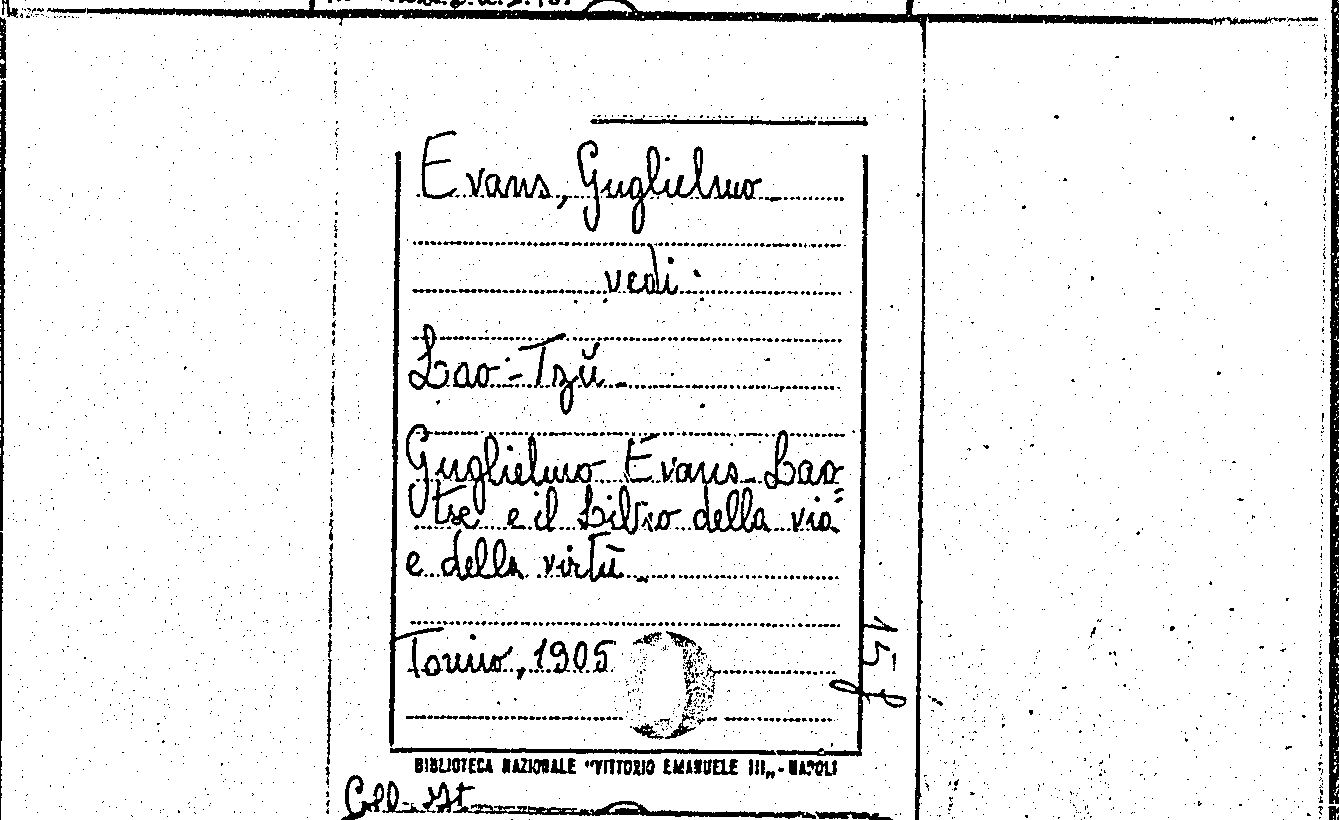 Evans, Guglielmo
vedi:
Lao-Tzŭ.
Guglielmo Evans-Lao=
tse e il Libro della via
e della virtù.
Torino, 1905
15 f
BIBLIOTECA NAZIONALE "VITTORIO EMANUELE III„-NAPOLI